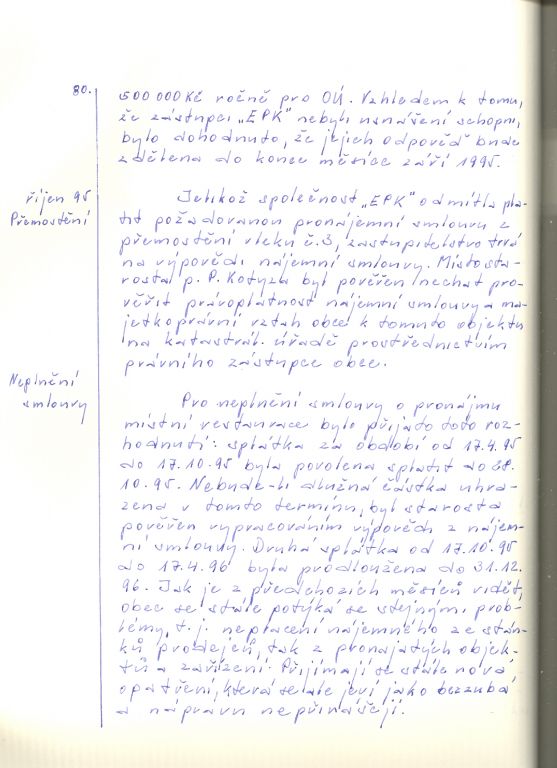 80.
500 000 Kč ročně pro OÚ. Vzhledem k tomu,
že zástupci „EPK" nebyli vznášení schopni,
bylo dohodnuto, že jejich odpověď bude
zdělena do konce měsíce září 1995.
říjen 95
Přemostění
Jelikož společnost „EPK" odmítla pla-
tit požadovanou pronájemní smlouvu z
přemostění vleku č. 3, zastupitelstvo trvá
na výpovědi nájemní smlouvy. Místosta-
rosta p. P. Kotyza byl pověřen nechat pro-
věřit právoplatnost nájemní smlouvy a ma-
jetkoprávní vztah obce k tomuto objektu
na katastrál. úřadě prostřednictvím
právního zástupce obce.
Neplnění
smlouvy
Pro neplnění smlouvy o pronájmu
místní restaurace bylo přijato toto roz-
hodnutí: splátka za období od 17.4.95
do 17.10.95 byla povolena splatit do 28.
10.95. Nebude-li dlužná částka uhra-
zena v tomto termínu, byl starosta
pověřen vypracováním výpovědi z nájem-
ní smlouvy. Druhá splátka od 17.10.95
do 17.4.96 byla prodloužena do 31.12.
96. Jak je z předchozích měsíců vidět,
obec se stále potýká se stejnými prob-
lémy, t.j. neplacení nájemného ze stán-
ků prodejen, tak z pronajatých objek-
tů a zařízení. Přijímají se stále nová
opatření, která se ale jeví jako bezzubá
a nápravu nepřinášejí.